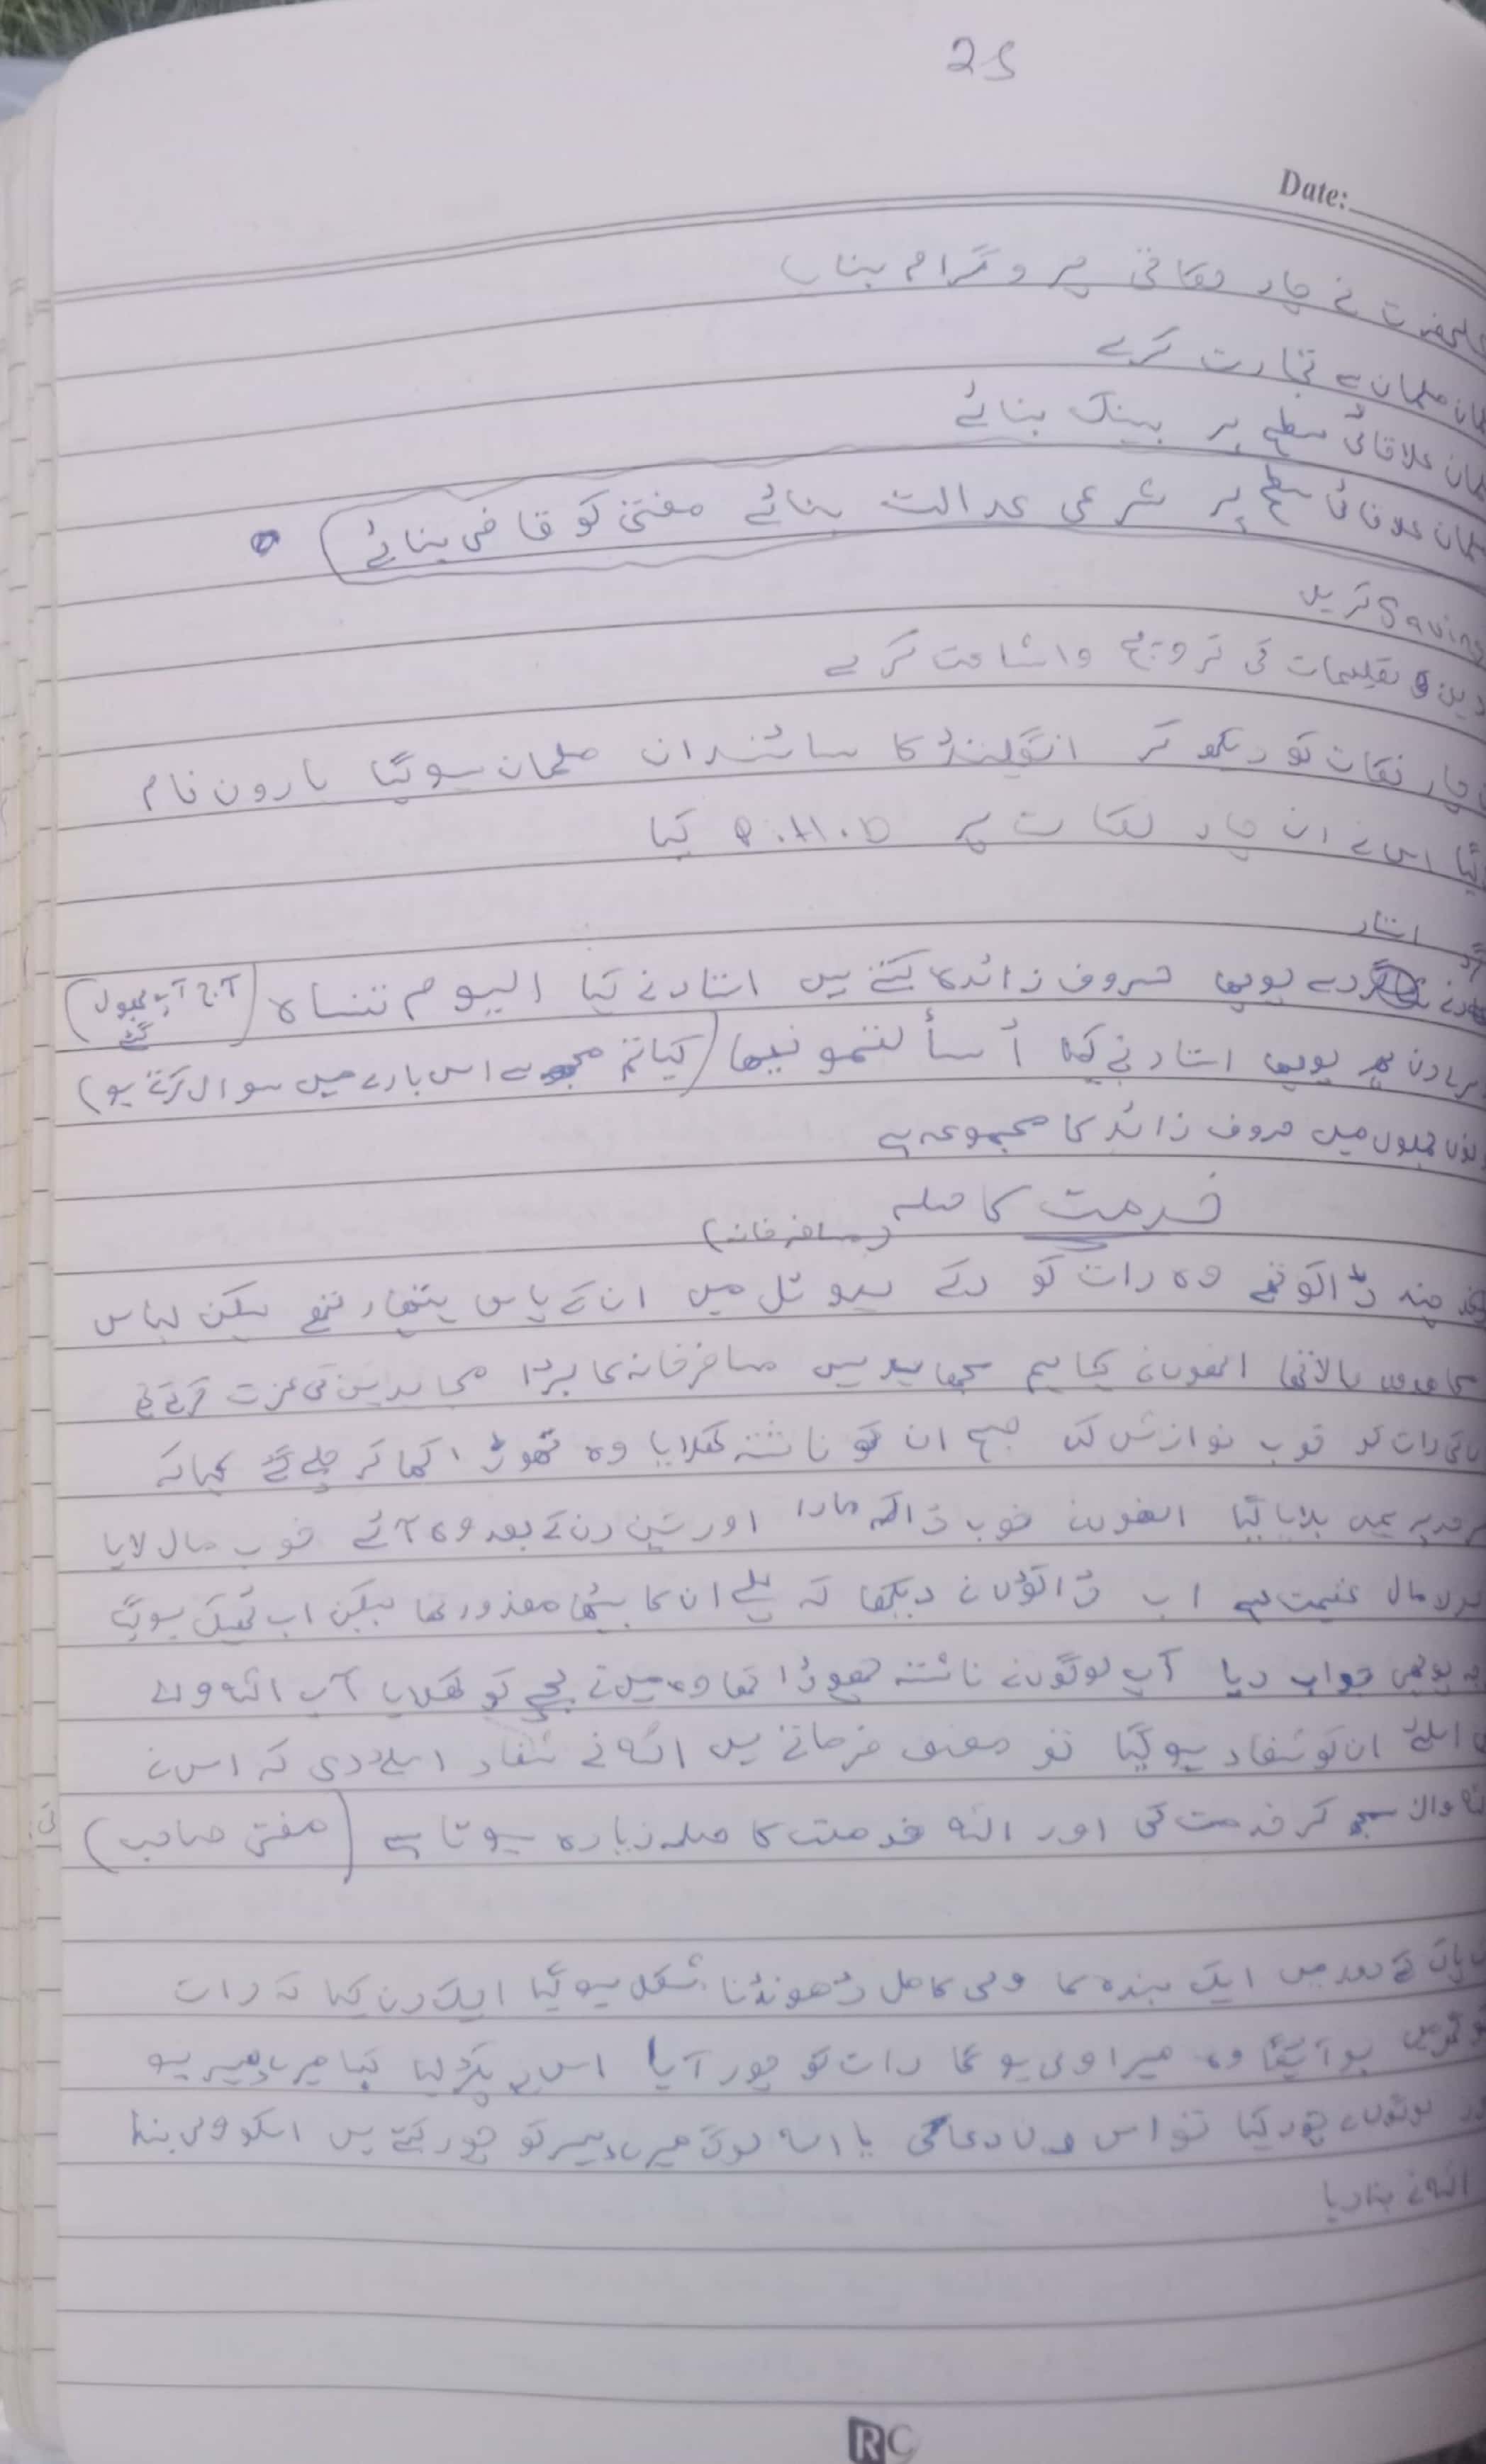 25
Date:
نے چار نقاتی پروگرام بنایا
مسلمان سے تجارت کرے
علاقائی سطح پر بینک بنائے
علاقائی سطح پر شرعی عدالت بنائے مفتی کو قاضی بنائے
Saving کریں
دین تعلیمات کی ترویج واشاعت کرے
چار نقات کو دیکھ کر انگلینڈ کا سائنسدان مسلمان ہوگیا ہارون نام
اس نے ان چار نقات پر P.H.D کیا
استاد
نے پوچھا حروف زائد کا کتنے ہیں استاد نے کہا الیوم تنساہ (آج آپ بھول گئے)
دن پھر پوچھا استاد نے کہا أسألتمونیھا (کیا تم مجھ سے اس بارے میں سوال کرتے ہو)
جملوں میں حروف زائد کا مجموعہ ہے
خدمت کا صلہ
(مسافر خانہ)
چند ڈاکو تھے وہ رات کو رکے ہوٹل میں ان کے پاس ہتھار تھے لیکن لباس
والا تھا انھوں نے کہا ہم مجاہد ہیں مسافر خانہ کا بڑا مجاہدین کی عزت کرتے تھے
رات کو خوب نوازش کی صبح ان کو ناشتہ کھلایا وہ تھوڑا کھا کر چلے گئے کہا کہ
سرحد پر ہمیں بلایا گیا انھوں نے خوب ڈاکہ مارا اور تین دن کے بعد وہ آئے خوب مال لایا
بولا مال غنیمت ہے اب ڈاکوؤں نے دیکھا کہ پہلے ان کا بیٹا معذور تھا لیکن اب ٹھیک ہوگیا
پوچھی جواب دیا آپ لوگوں نے ناشتہ چھوڑا تھا وہ میں نے بچے کو کھلایا آپ اللہ والے
اسلئے ان کو شفاء ہوگیا تو مصنف فرماتے ہیں اللہ نے شفاء اسلئے دی کہ اس نے
اللہ والا سمجھ کر خدمت کی اور اللہ خدمت کا صلہ زیادہ ہوتا ہے (مفتی صاحب)
کے دور میں ایک بندہ کا ولی کامل ڈھونڈنا مشکل ہوگیا ایک دن کہا کہ رات
کو گھر میں جو آئیگا وہ میرا ولی ہوگا رات کو چور آیا اس نے پکڑ لیا کہا میرے پیر ہو
لوگوں نے چور کہا تو اس نے دعا کی یا اللہ لوگ میرے پیر کو چور کہتے ہیں اسکو ولی بنا
اللہ نے بنا دیا
RC